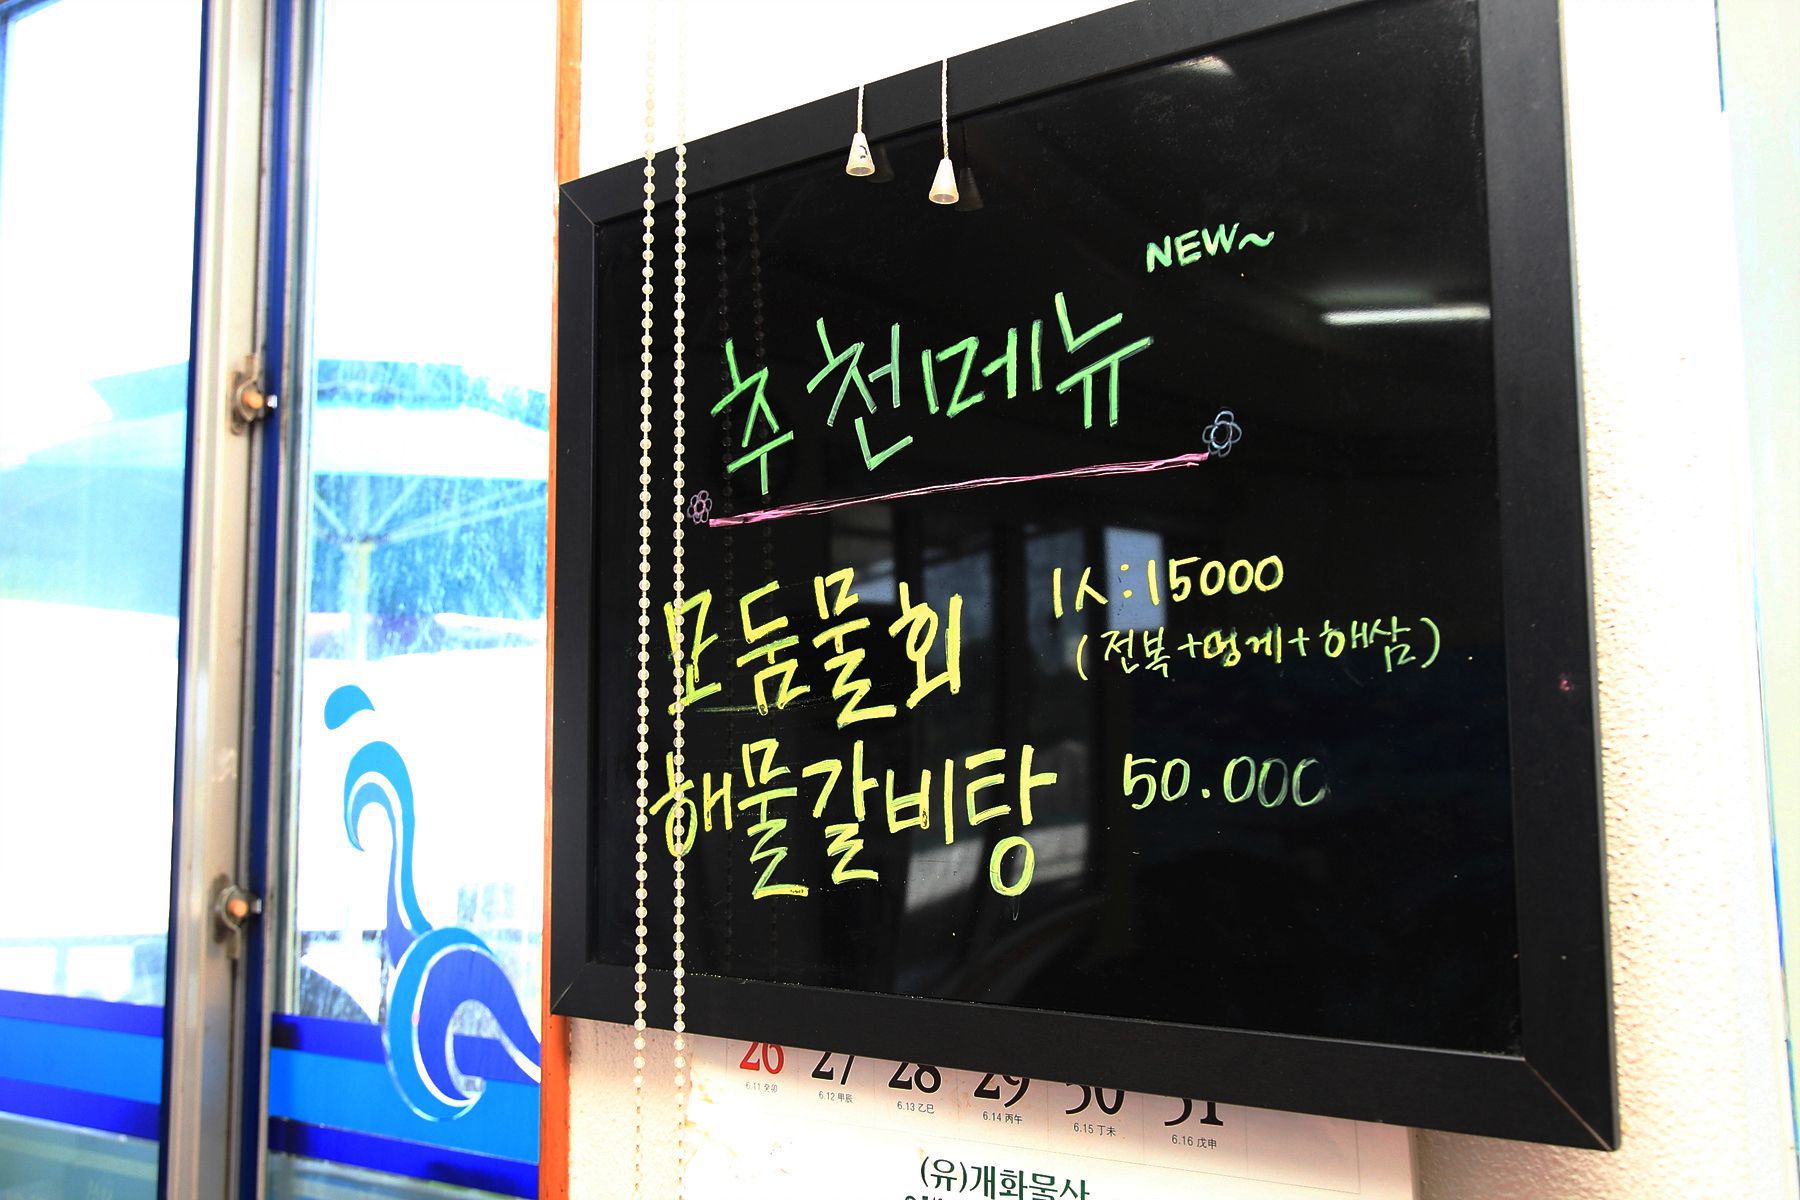 NEW~
추천메뉴
모둠물회 1人:15000
(전복+멍게+해삼)
해물갈비탕 50.000
26 27 28 29 30 31
6.11 癸卯 6.12 甲辰 6.13 乙巳 6.14 丙午 6.15 丁未 6.16 戊申
(유)개화물산